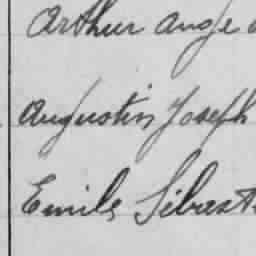 Arthur Ange
Augustin Joseph
Emile Sébast